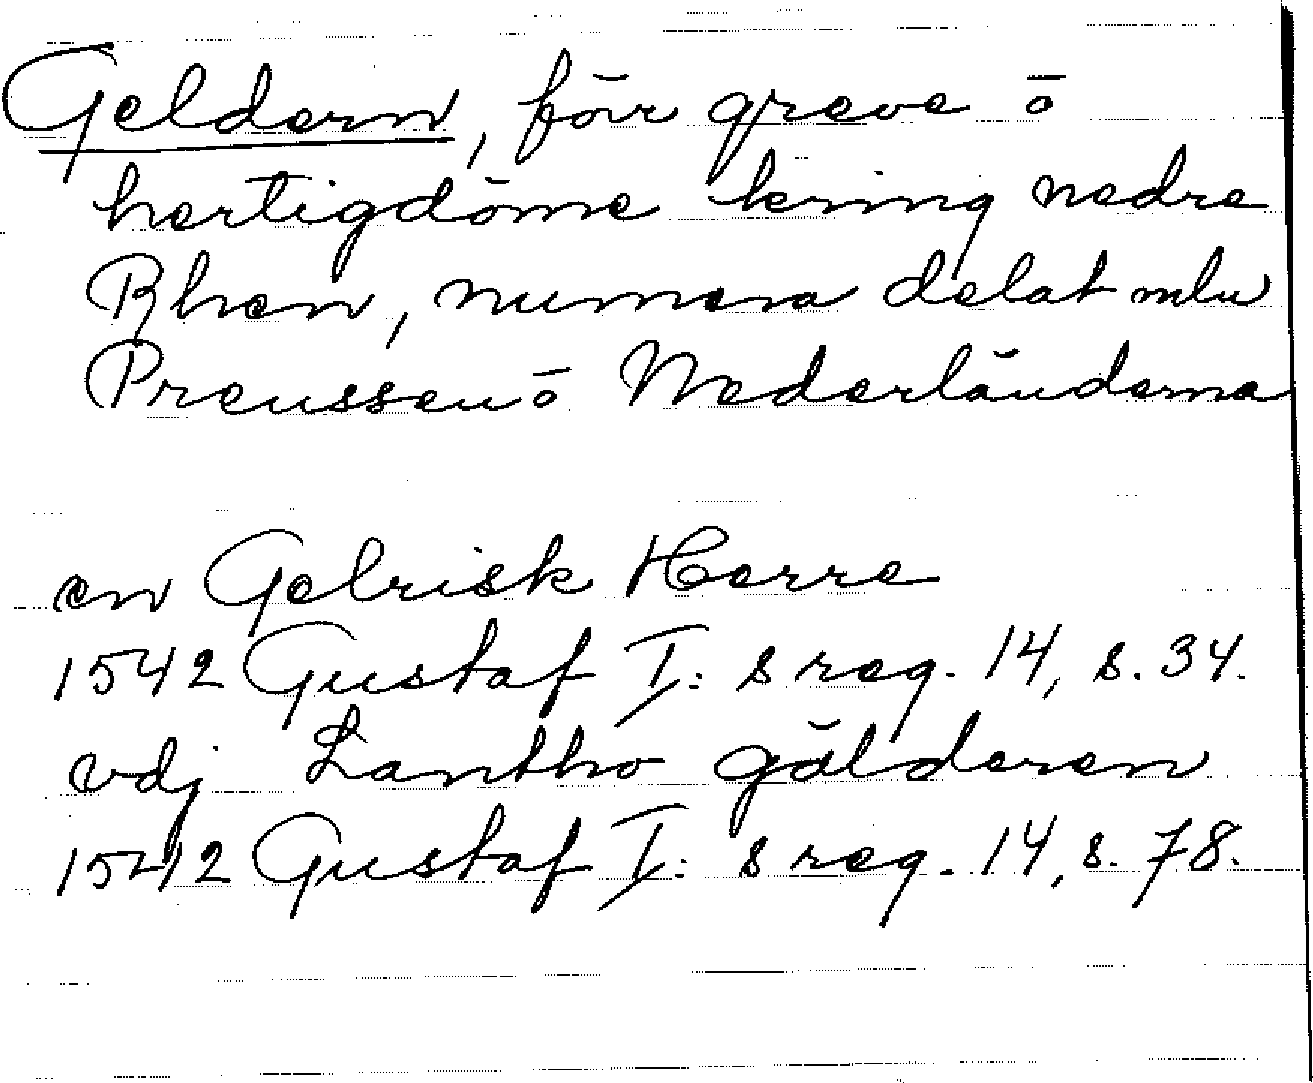 Geldern, förr greve ō
hertigdöme kring nedre
Rhen, numera delat mlu
Preussen ō Nederländerna
en Gelrisk Herre
1542 Gustaf I: s reg. 14, s. 34.
vdj Lantho gälderen
1542 Gustaf I: s reg. 14, s. 78.